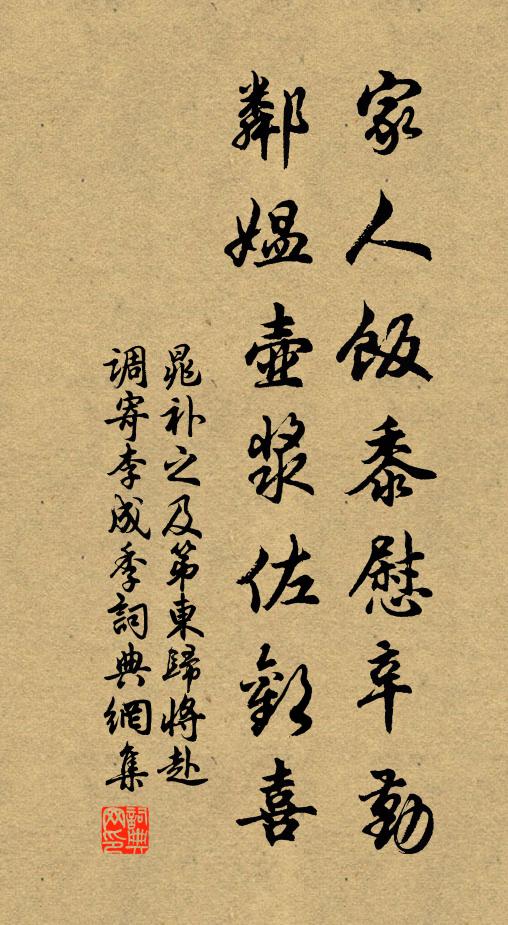 家人飯黍慰辛勤
鄰媼壺漿佐歡喜
晁補之及第東歸將赴
調寄李成季詞典網集
詞典網印